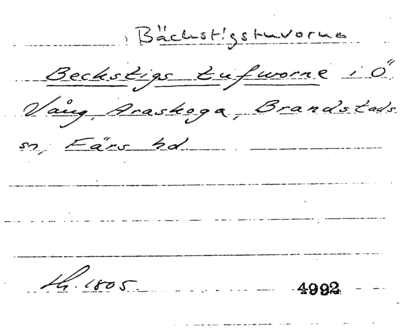 Bäckstigstuvorna
Beckstigs tufworne i Ö
Vång, Araskoga, Brandstads
sn, Färs hd
h. 1805. 4992